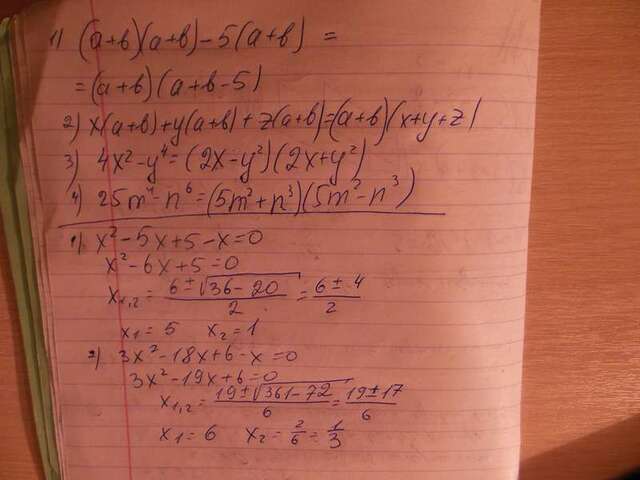 1) (a+в)(a+в)-5(a+в) =
=(a+в)(a+в-5)
2) x(a+в)+y(a+в)+z(a+в)=(a+в)(x+y+z)
3) 4x²-y⁴=(2x-y²)(2x+y²)
4) 25m⁴-n⁶=(5m²+n³)(5m²-n³)
1) x²-5x+5-x=0
x²-6x+5=0
x₁,₂=(6±√(36-20))/2=(6±4)/2
x₁=5 x₂=1
2) 3x²-18x+6-x=0
3x²-19x+6=0
x₁,₂=(19±√(361-72))/6=(19±17)/6
x₁=6 x₂=2/6=1/3